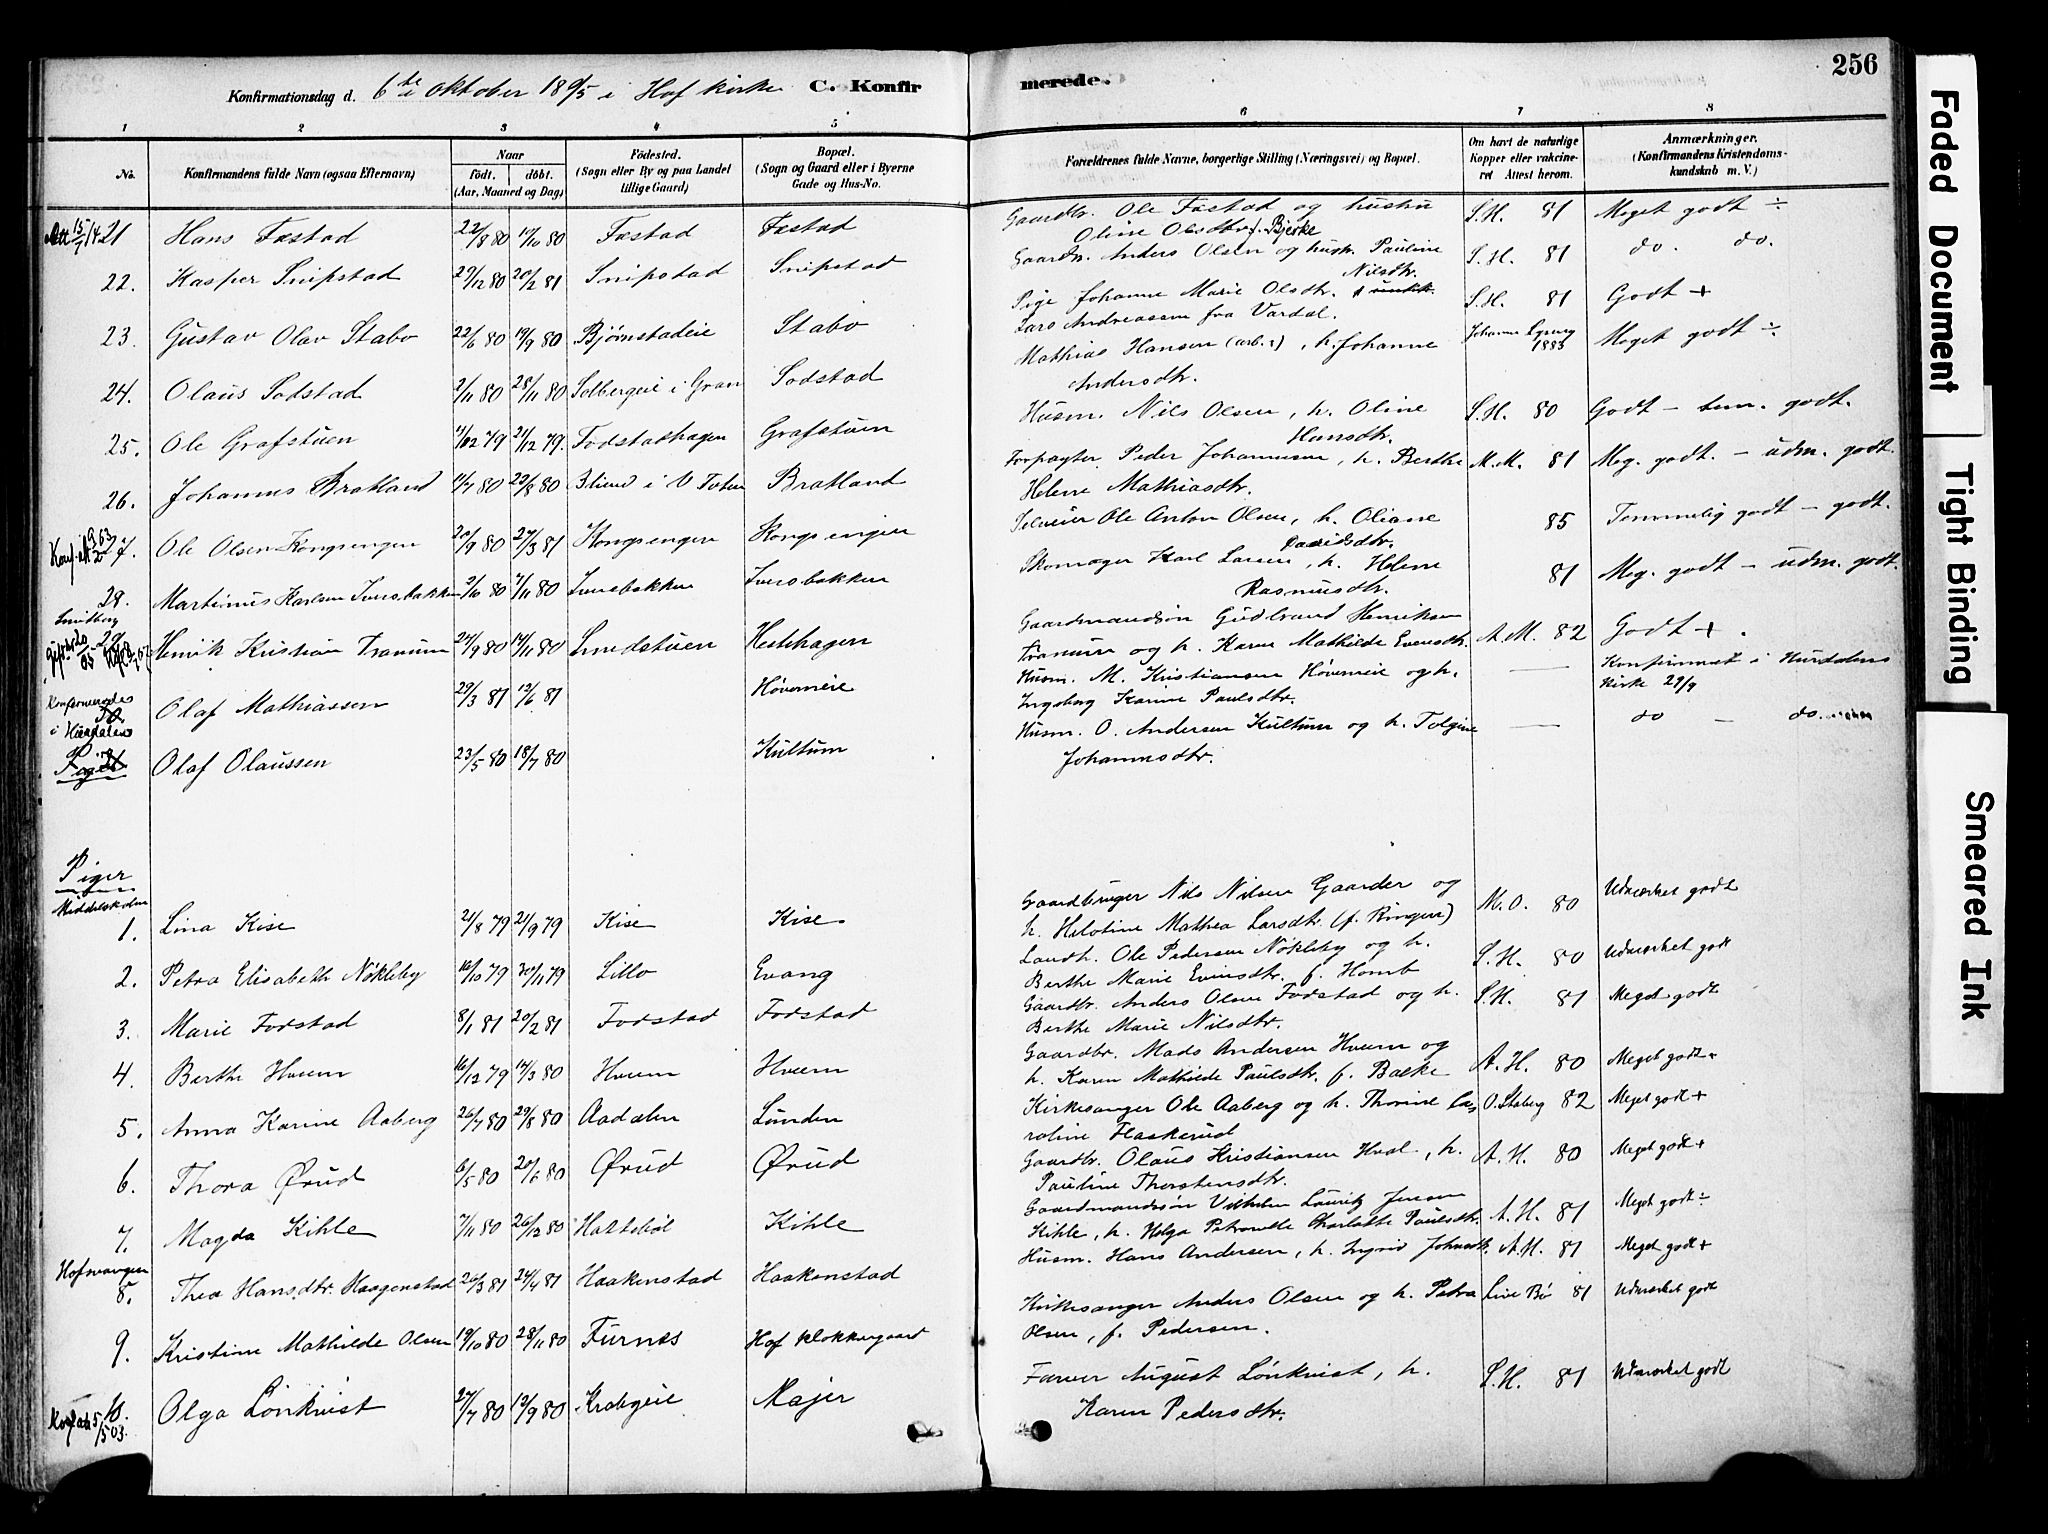 256
Konfirmationsdag d. 6te oktober 1895 i Hof kirke C. Konfirmerede.
1 2 3 4 5 6 7 8
No. Konfirmandens fulde Navn (ogsaa Efternavn) Naar födt. döbt. (Aar, Maaned og Dag) Födested. (Sogn eller By og paa Landet tillige Gaard) Bopæl. (Sogn og Gaard eller i Byerne Gade og Hus-No. Forældrenes fulde Navne, borgerlige Stilling (Næringsvei) og Bopæl. Om havt de naturlige Kopper eller vakcineret Attest herom. Anmærkninger. (Konfirmandens Kristendomskundskab m. V.)
21 Hans Fæstad 22/8 80 17/10 80 Fæstad Fæstad Gaardbr. Ole Fæstad og hustru S.H. 81 Meget godt ÷
Oline Olsdtr. f. Bjerke
22. Kasper Snipstad 29/12 80 20/2 81 Snipstad Snipstad Gaardbr. Anders Olsen og hustr. Pauline S.H. 81 do. do.
Nilsdtr.
23. Gustav Olav Stabo 22/6 80 19/9 80 Bjørnstadeie Stabo Pige Johanne Marie Olsdtr. S.H. 81 Godt +
Lars Andreassen fra Vardal.
24. Olaus Sodstad 2/11 80 28/11 80 Solbergeie i Gran Sodstad Mathias Hansen (arb.), h. Johanne 1883 Meget godt ÷
Andersdtr.
25. Ole Grafstuen 11/12 79 21/12 79. Fodstadhagen Grafstuen Husm. Nils Olsen, h. Oline S.H. 80 Godt – tem. godt.
Hansdtr.
26. Johannes Bratland 11/7 80 29/8 80 i V Toten Bratland Forpagter Peder Johannesen, h. Berthe M.M. 81 Meg. godt. – udm. godt.
Helene Mathiasdtr.
27. Ole Olsen Kongsengen 20/9 80 27/3 81 Kongsengen Kongsengen Selveier Ole Anton Olsen, h. Oliane 85 Temmelig godt – godt.
Davidsdtr.
28. Martinus Karlsen Iversbakken 2/10 80 7/11 80 Iversbakken Iversbakken Skomager Karl Larsen, h. Helene 81 Meg. godt – udm. godt.
Rasmusdtr.
29 Henrik Kristian Tranum 24/9 80 14/11 80 Smedstuen Hestehagen Gaardmandssøn Gudbrand Henriksen A.M. 82 Godt +
Tranum og h. Karen Mathilde Evensdtr.
Konfirmeredes i Hurdalens 30 Olaf Mathiassen 29/3 81 12/6 81 Høverneie Husm. M. Kristiansen Høverneie og h. — Konfirmeret i Hurdalens
Ingeborg Karine Paulsdtr. Kirke 29/9
Olaf Olaussen 23/5 80 18/7 80 Kultum Husm. O. Andersen Kultum og h. Tolgine — do – do.
Johannesdtr.
Piger
Middelskolen
1. Lina Kise 21/8 79 21/9 79 Kise Kise Gaardbruger Nils Nilsen Gaarder og M.O. 80 Udmærket godt
h. Helotine Mathea Larsdtr. (f. Ringen)
2. Petra Elisabeth Nøkleby 16/10 79 30/11 79 Lillo Evang Landh. Ole Pedersen Nøkleby og h. S.H. 80 Udmærket godt
Berthe Marie Evensdtr. f. Homb
3. Marie Fodstad 8/1 81 20/2 81 Fodstad Fodstad Gaardbr. Anders Olsen Fodstad og h. S.H. 81 Meget godt
Berthe Marie Nilsdtr.
4. Berthe Hveem 16/12 79 14/3 80 Hveem Hveem Gaardbr. Mads Andersen Hveem og A.H. 80 Meget godt +
h. Karen Mathilde Paulsdtr. f. Balke
5. Anna Karine Aaberg 26/7 80 29/8 80 Aadalen Lunden Kirkesanger Ole Aaberg og h. Thorine Ca- O. Staberg 82 Meget godt +
roline Flaskerud
6. Thora Ørud 6/5 80 20/6 80 Ørud Ørud Gaardbr. Olaus Kristiansen Hval, h. A.H. 80 Meget godt +
Pauline Thorstensdtr.
7. Magda Kihle 7/11 80 26/12 80 Hattebøl Kihle Gaardmandssøn Vilhelm Lauritz Jensen A.H. 81 Meget godt ÷
Kihle, h. Helga Petronelle Charlotte Paulsdtr.
Hofsvangen 8. Thea Hansdtr. Haagenstad 26/3 81 24/4 81 Haakenstad Haakenstad Husm. Hans Andersen, h. Ingrid Johansdtr. A.H. 81 Meget godt +
9. Kristine Mathilde Olsen 19/10 80 28/11 80 Furnes Hof klokkergaard Kirkesanger Anders Olsen og h. Petra Line Bø 81 Udmærket godt
Olsen, f. Pedersen.
10. Olga Lönkvist 27/7 80 12/9 80 Krabyeie Majer Farver August Lönkvist, h. S.H. 81 Udmærket godt
Karen Pedersdtr.
Faded Document
Tight Binding
Smeared Ink